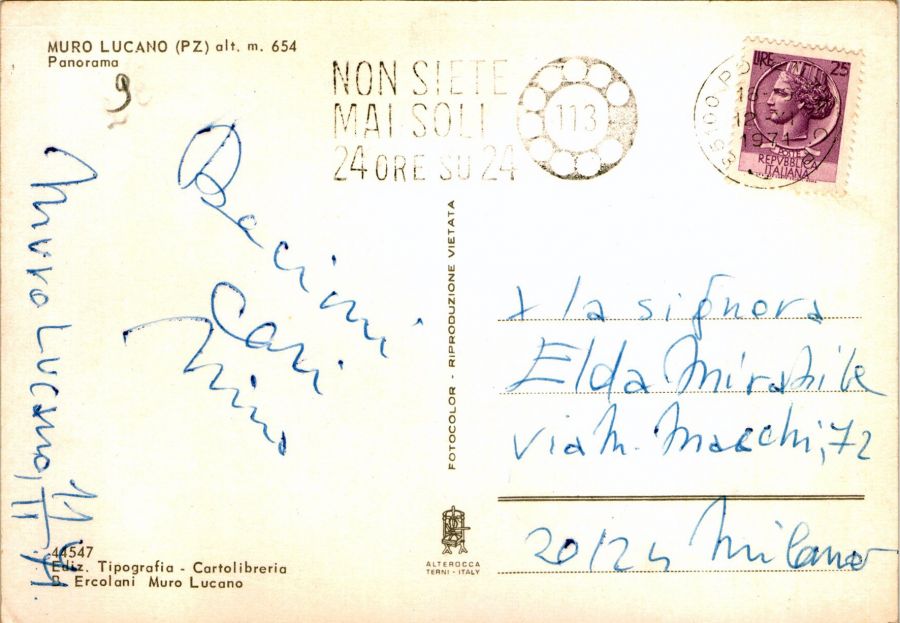 MURO LUCANO (PZ) alt. m. 654
Panorama
9
NON SIETE
MAI SOLI
24 ORE SU 24
113
1971
LIRE 25
POSTE
REPVBBLICA
ITALIANA
Bacioni
Cari
Nino
Muro Lucano,
FOTOCOLOR - RIPRODUZIONE VIETATA
x la signora
Elda Mirabile
via M. Macchi, 72
20124 Milano
44547
Ediz. Tipografia - Cartolibreria
Ercolani Muro Lucano
ALTEROCCA
TERNI - ITALY